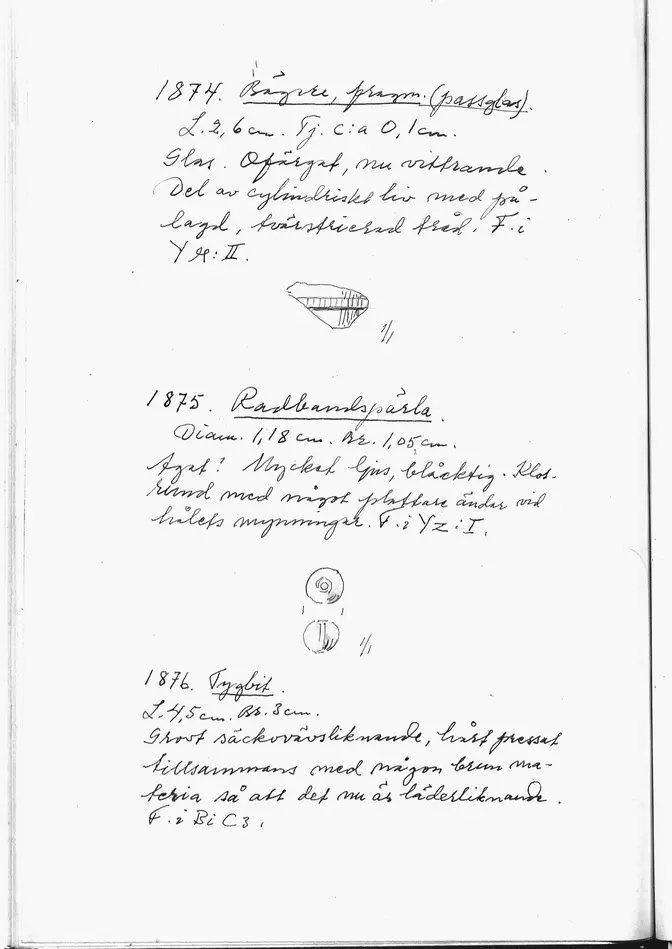 1874. Bägare, fragm. (passglas).
L. 2,6 cm. Tj. c:a 0,1 cm.
Glas. Ofärgat, nu vittrande.
Del av cylindriskt liv med på-
lagd, tvärstrierad tråd. F. i
II.
1/1
1875. Radbandspärla.
Diam. 1,18 cm. Br. 1,05 cm.
Agat? Mycket ljus, blåaktig. Klot-
rund med något plattare ändar vid
hålets mynningar. F. i Yz:I.
1/1
1876. Tygbit.
L. 4,5 cm. Br. 3 cm.
Grovt säckvävsliknande, hårt pressat
tillsammans med någon brun ma-
teria så att det nu är läderliknande.
F. i Bi C3.